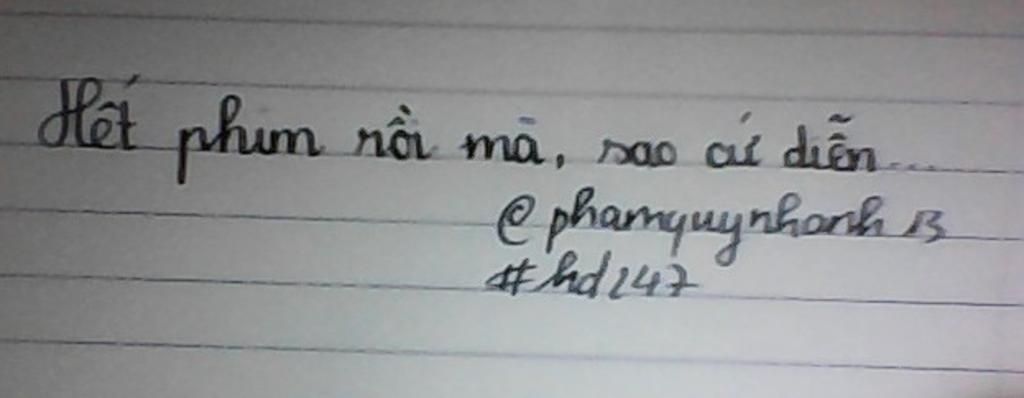 Hết phim rồi mà, sao cứ diễn...
@phamquynhanh13
#hd247